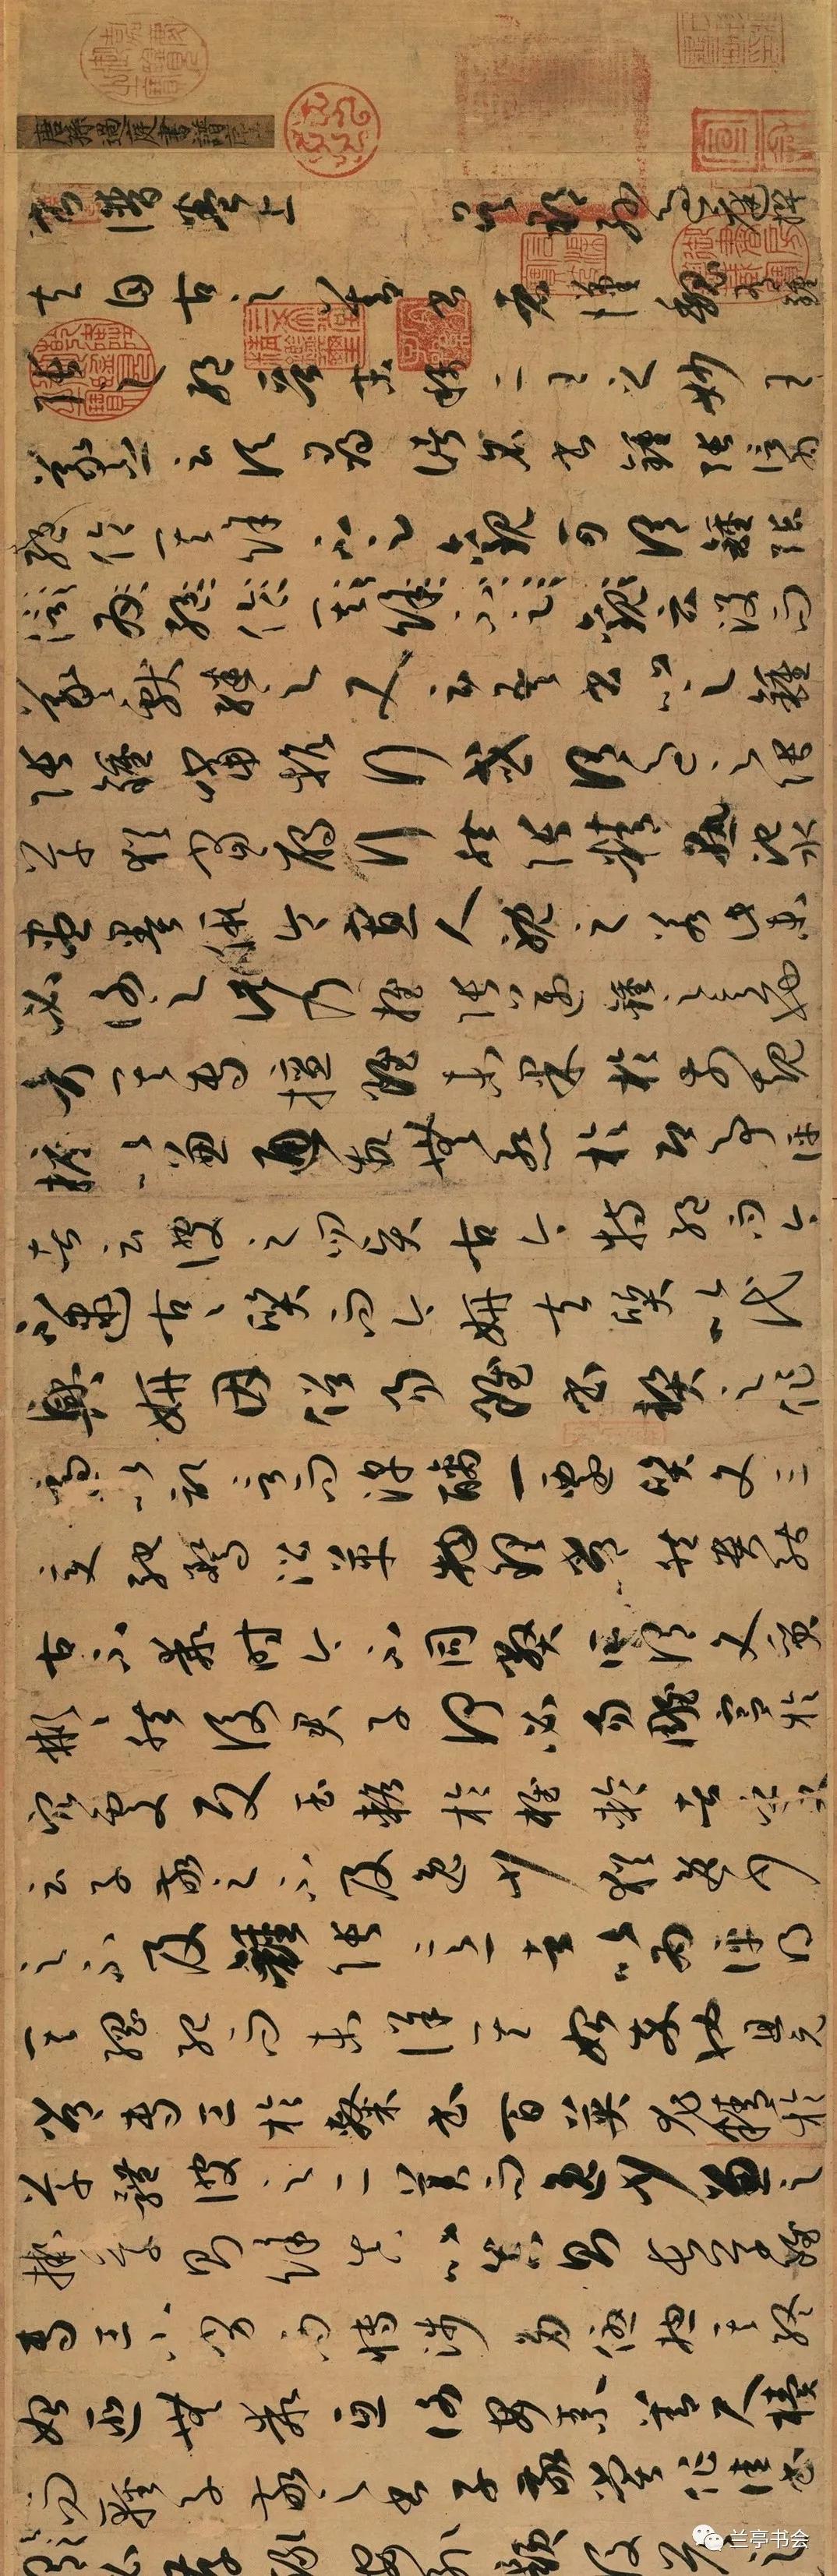 唐孫過庭書譜序
書譜卷上 吳郡孫過庭撰
夫自古之善書者漢魏有鍾
張之絕晉末稱二王之妙王
羲之云頃尋諸名書鍾張信為
絕倫其餘不足觀可謂鍾張
信為絕倫其餘不足觀云沒而
羲獻繼之又云吾書比之鍾
張鍾當抗行或謂過之張
草猶當鴈行然張精熟池水
盡墨假令寡人耽之若此未
必謝之此乃推張邁鍾之意也
考其專擅雖未果於前規
摭以兼通故無慚於即事評
者云彼之四賢古今特絕而今
不逮古古質而今妍夫質以代
興妍因俗易雖書契之作
適以記言而淳醨一遷質文三
變馳騖沿革物理常然貴能
古不乖時今不同弊所謂文質
彬彬然後君子何必易雕宮於
穴處反玉輅於椎輪者乎又
云子敬之不及逸少猶逸少
之不及鍾張意者以為評得
其綱紀而未詳其始卒也且元
常專工於隸書百英尤精於
草體彼之二美而逸少兼之
擬草則餘真比真則長草雖
專工小劣而博涉多優揔其終
始匪無乖互謝安素善尺牘
而輕子敬之書子敬嘗作佳書
兰亭书会